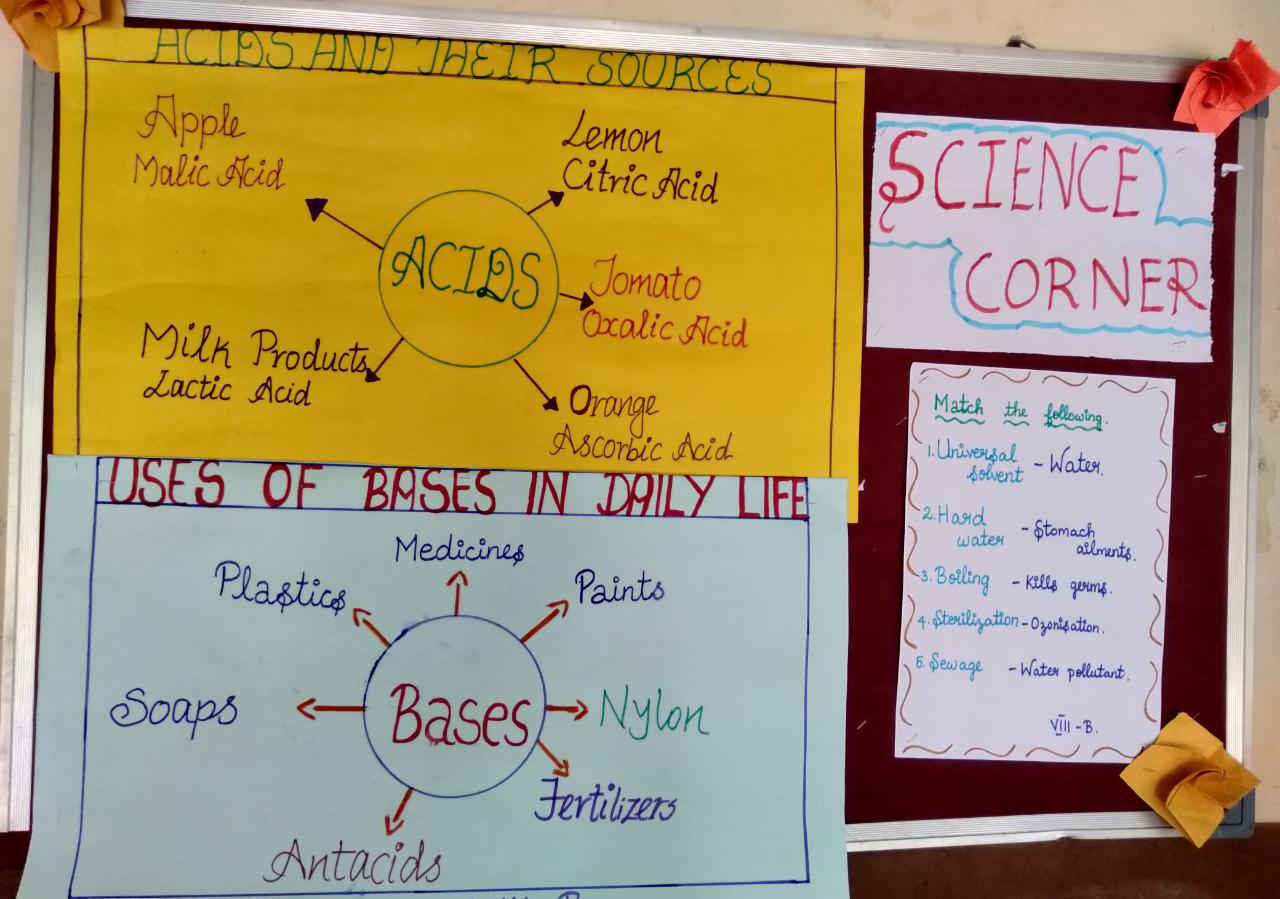 ACIDS AND THEIR SOURCES
Apple
Malic Acid
Lemon
Citric Acid
ACIDS
Tomato
Oxalic Acid
Milk Products
Lactic Acid
Orange
Ascorbic Acid
USES OF BASES IN DAILY LIFE
Medicines
Plastics
Paints
Soaps
Bases
Nylon
Fertilizers
Antacids
SCIENCE
CORNER
Match the following.
1. Universal
solvent - Water.
2. Hard
water - Stomach
ailments.
3. Boiling - Kills germs.
4. Sterilization - Ozonisation.
5. Sewage - Water pollutant.
VIII - B.